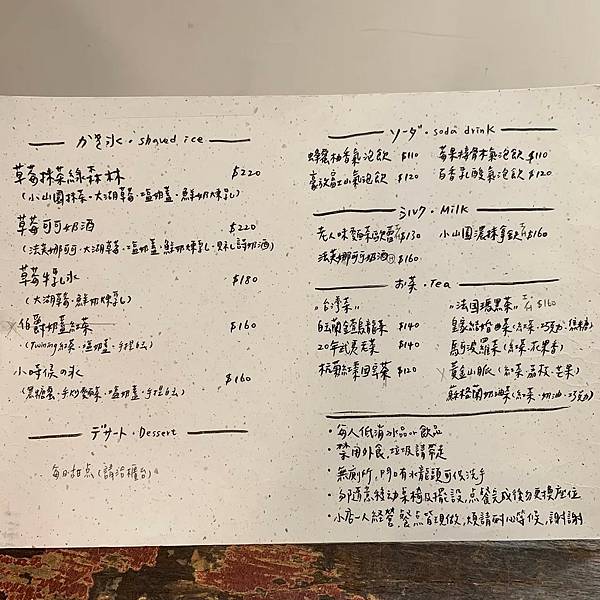 かき氷・shaved ice
草莓抹茶綠森林 $220
(小山園抹茶・大湖草莓・鹽奶蓋・鮮奶煉乳)
草莓可可奶酒 $220
(法芙娜可可・大湖草莓・鹽奶蓋・鮮奶煉乳・貝禮詩奶酒)
草莓牛乳氷 $180
(大湖草莓・鮮奶煉乳)
伯爵奶蓋紅茶 $160
(Twining紅茶・鹽奶蓋・手搓)
小時候の氷 $160
(黑糖蜜・手炒麵茶・鹽奶蓋・手搓)
デザート・Dessert
每日甜点(請洽櫃台)
ソーダ・soda drink
蜂蜜柚香氣泡飲 $110
莓果接骨木氣泡飲 $110
豪放富士山氣泡飲 $120
百香乳酸氣泡飲 $120
ミルク・Milk
老人味麵茶歐蕾 $130
小山園濃抹拿鉄 $160
法芙娜可可奶酒 $160
お茶・Tea
"台灣茶"
"法國瑪黑茶" $160
白玉蘭金萱烏龍茶 $140
皇家結婚曲茶(紅茶・巧克力・焦糖)
20年武夷老茶 $140
馬可波羅茶(紅茶・花果香)
杭菊紅棗固阜茶 $120
黃金山脈(紅茶・荔枝・芒果)
蘇格蘭奶油茶(紅茶・奶油・巧克力)
・每人低消氷品or飲品
・禁用外食、垃圾請帶走
・無廁所、門口有水龍頭可供洗手
・勿隨意移動桌椅及擺設、点餐完成後勿更換座位
・小店一人經營、餐点皆現做、煩請耐心等候、謝謝